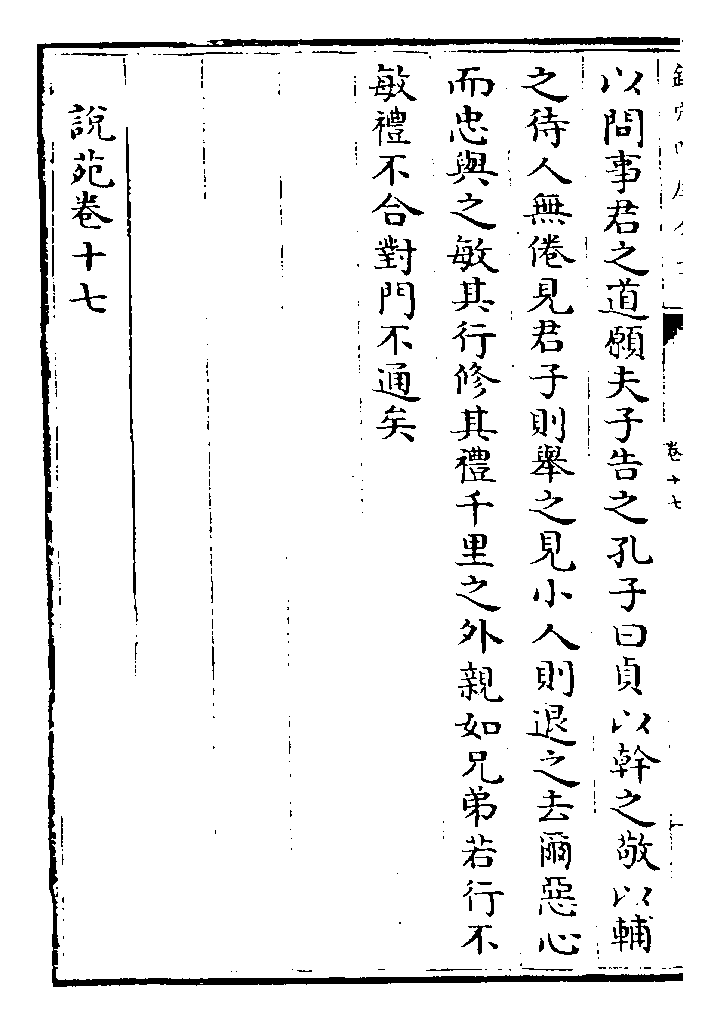 以問事君之道願夫子告之孔子曰貞以幹之敬以輔
之待人無倦見君子則舉之見小人則退之去爾惡心
而忠與之敏其行修其禮千里之外親如兄弟若行不
敏禮不合對門不通矣
說苑卷十七
卷十七